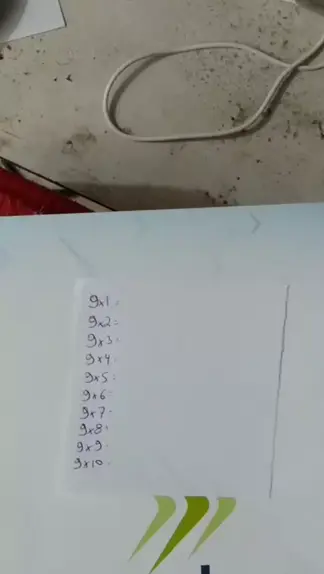 9x1=
9x2=
9x3=
9x4=
9x5=
9x6=
9x7=
9x8=
9x9=
9x10=